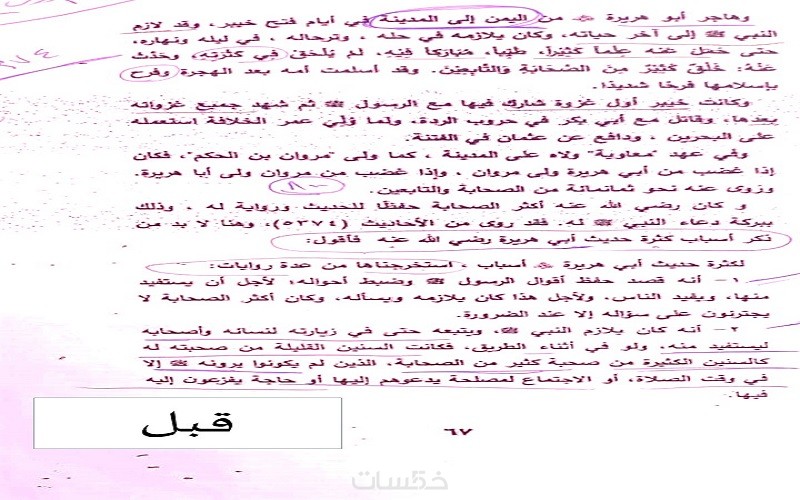 وهاجر أبو هريرة ﷺ من اليمن إلى المدينة في أيام فتح خيبر، وقد لازم
النبي ﷺ إلى آخر حياته، وكان يلازمه في حله ، وترحاله ، في ليله ونهاره،
حتى حمل عنه علماً كثيراً، طيباً، مباركاً فيه، لم يلحق في كثرته، وحدث
عنه: خلق كثير من الصحابة والتابعين. وقد أسلمت أمه بعد الهجرة وفرح
بإسلامها فرحًا شديدًا.
وكانت خيبر أول غزوة شارك فيها مع الرسول ﷺ ثم شهد جميع غزواته
بعدها، وقاتل مع أبي بكر في حروب الردة، ولما ولي عمر الخلافة استعمله
على البحرين ، ودافع عن عثمان في الفتنة.
وفي عهد "معاوية" ولاه على المدينة ، كما ولى "مروان بن الحكم"، فكان
إذا غضب من أبي هريرة ولى مروان ، وإذا غضب من مروان ولى أبا هريرة.
وروى عنه نحو ثمانمائة من الصحابة والتابعين. ٨٠٠
و كان رضي الله عنه أكثر الصحابة حفظًا للحديث ورواية له ، وذلك
ببركة دعاء النبي ﷺ له. فقد روى من الأحاديث (٥٣٧٤)، وهنا لا بد من
ذكر أسباب كثرة حديث أبي هريرة رضي الله عنه فأقول:
لكثرة حديث أبي هريرة أسباب ، استخرجناها من عدة روايات:
١– أنه قصد حفظ أقوال الرسول ﷺ وضبط أحواله؛ لأجل أن يستفيد
منها، ويفيد الناس. ولأجل هذا كان يلازمه ويسأله، وكان أكثر الصحابة لا
يجترئون على سؤاله إلا عند الضرورة.
٢– أنه كان يلازم النبي ﷺ، ويتبعه حتى في زيارته لنسائه وأصحابه
ليستفيد منه، ولو في أثناء الطريق، فكانت السنين القليلة من صحبته له
كالسنين الكثيرة من صحبة كثير من الصحابة، الذين لم يكونوا يرونه ﷺ إلا
في وقت الصلاة، أو الاجتماع لمصلحة يدعوهم إليها أو حاجة يفزعون إليه
فيها.
٦٧
قبل
خمسات